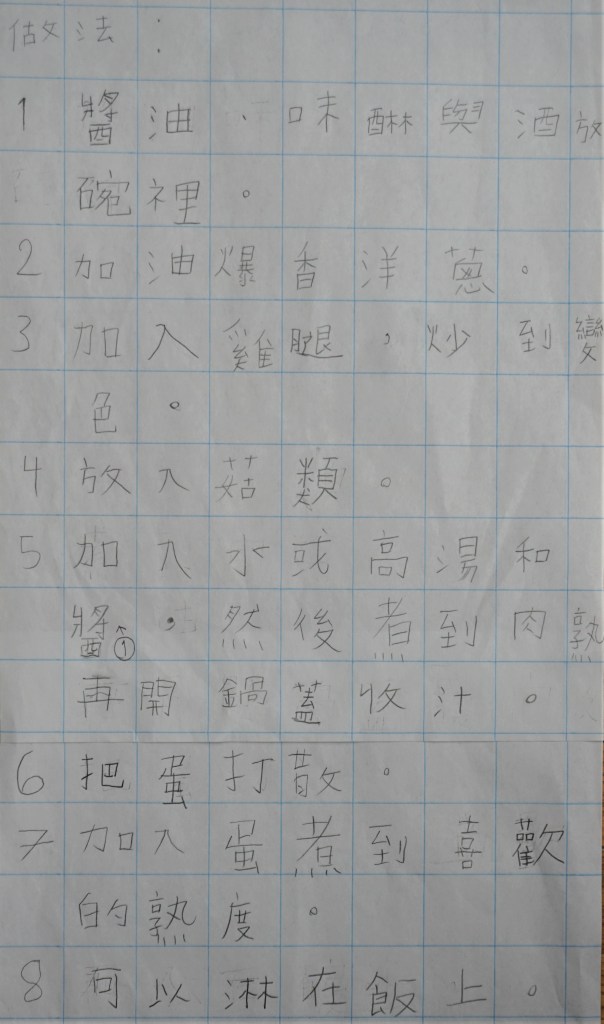 做法：
1 醬油、味醂與酒放
碗裡。
2 加油爆香洋蔥。
3 加入雞腿，炒到變
色。
4 放入菇類。
5 加入水或高湯和
醬①，然後煮到肉熟
再開鍋蓋收汁。
6 把蛋打散。
7 加入蛋煮到喜歡
的熟度。
8 可以淋在飯上。